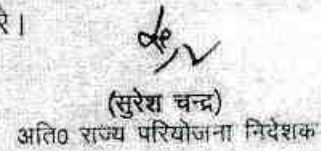 रे।
(सुरेश चन्द्र)
अति० राज्य परियोजना निदेशक